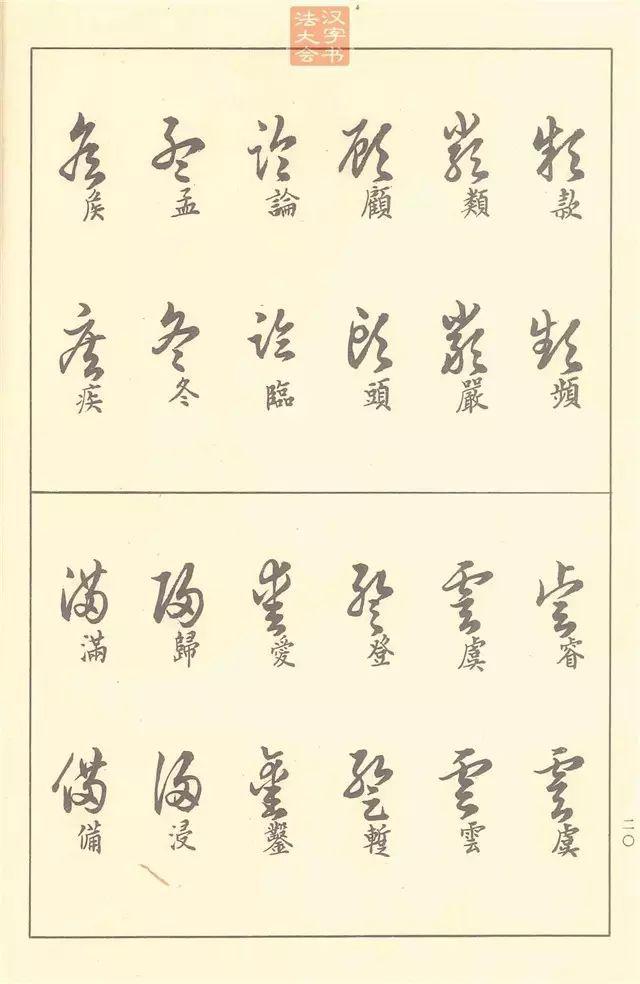 汉字书
法大会
款 類 顧 論 孟 侯
頻 嚴 頭 臨 冬 疾
睿 虞 登 愛 歸 滿
虞 雲 蹔 鑿 浸 備
二〇